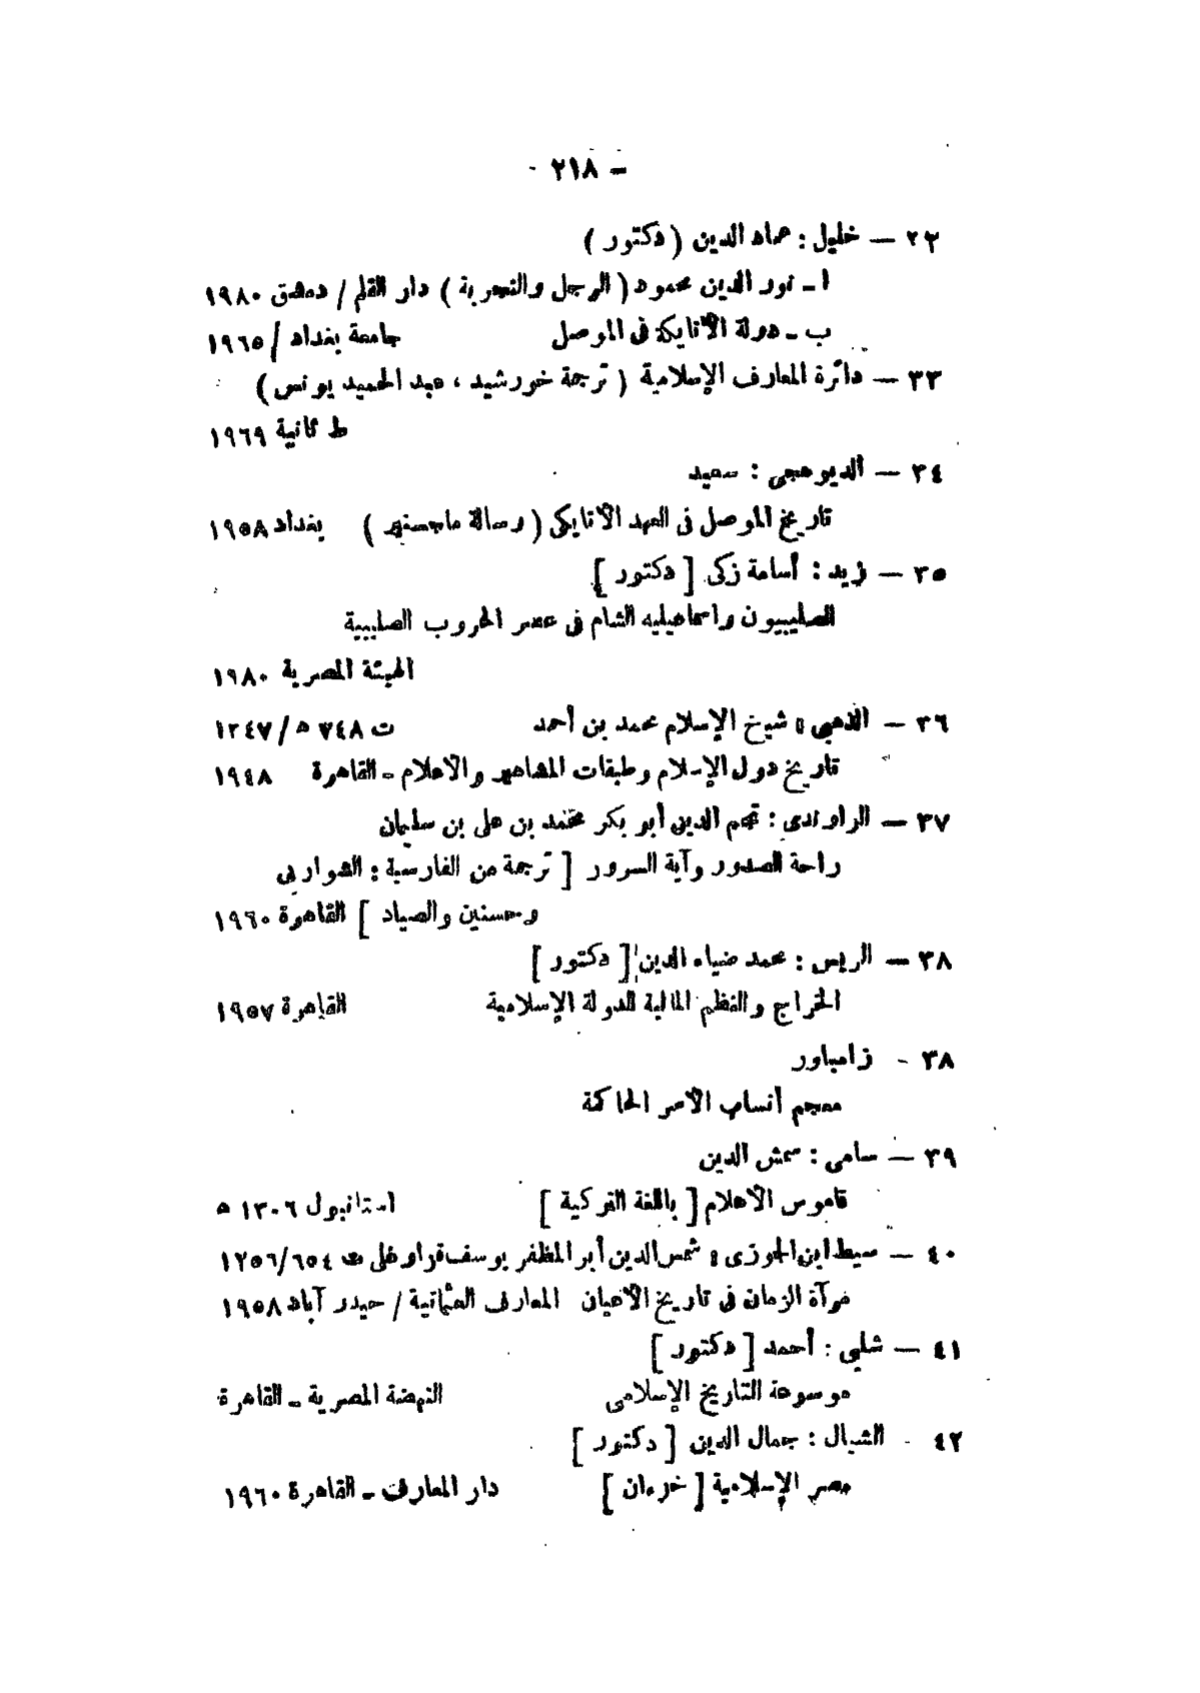 - ٢١٨ -
٢٢ — خليل : عماد الدين ( دكتور )
ا - نور الدين محمود ( الرجل والتجربة ) دار القلم / دمشق ١٩٨٠
ب - دولة الأتابكة فى الموصل جامعة بغداد / ١٩٦٥
٣٣ — دائرة المعارف الإسلامية ( ترجمة خورشيد ، عبد الحميد يونس )
ط ثانية ١٩٦٩
٣٤ — الديوهجى : سعيد
تاريخ الموصل فى العهد الأتابكى ( رسالة ماجستير ) بغداد ١٩٥٨
٣٥ — زيد : أسامة زكى [ دكتور ]
الصليبيون واسماعيليه الشام فى عصر الحروب الصليبية
الهيئة المصرية ١٩٨٠
٣٦ — الذهبى : شيخ الإسلام محمد بن أحمد ت ٧٤٨ ه / ١٣٤٧
تاريخ دول الإسلام وطبقات المشاهير والأعلام - القاهرة ١٩٤٨
٣٧ — الراوندى : نجم الدين أبو بكر محمد بن على بن سليمان
راحة الصدور وآية السرور [ ترجمة من الفارسية : الشواربى
وحسنين والصياد ] القاهرة ١٩٦٠
٣٨ — الريس : محمد ضياء الدين [ دكتور ]
الخراج والنظم المالية للدولة الإسلامية القاهرة ١٩٥٧
٣٨ - زامباور
معجم أنساب الأسر الحاكمة
٣٩ — سامى : شمش الدين
قاموس الأعلام [ باللغة التركية ] استانبول ١٣٠٦ ه
٤٠ — سبط ابن الجوزى : شمس الدين أبر المظفر يوسف قراوغلى ت ٦٥٤/١٢٥٦
مرآة الزمان فى تاريخ الأعيان المعارف العثمانية / حيدر آباد ١٩٥٨
٤١ — شلبى : أحمد [ دكتور ]
موسوعة التاريخ الإسلامى النهضة المصرية - القاهرة
٤٢ - الشيال : جمال الدين [ دكتور ]
مصر الإسلامية [ جزءان ] دار المعارف - القاهرة ١٩٦٠